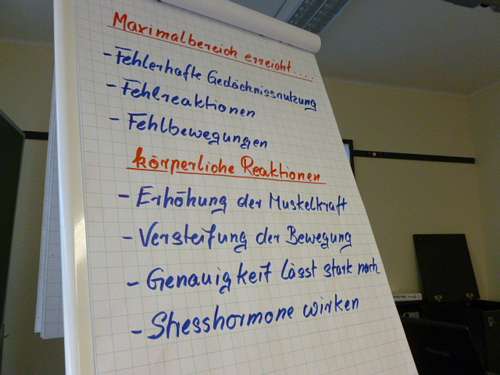 Maximalbereich erreicht.....
- Fehlerhafte Gedächnissnutzung
- Fehlreaktionen
- Fehlbewegungen
körperliche Reaktionen
- Erhöhung der Muskelkraft
- Versteifung der Bewegung
- Genauigkeit lässt stark nach
- Stresshormone wirken